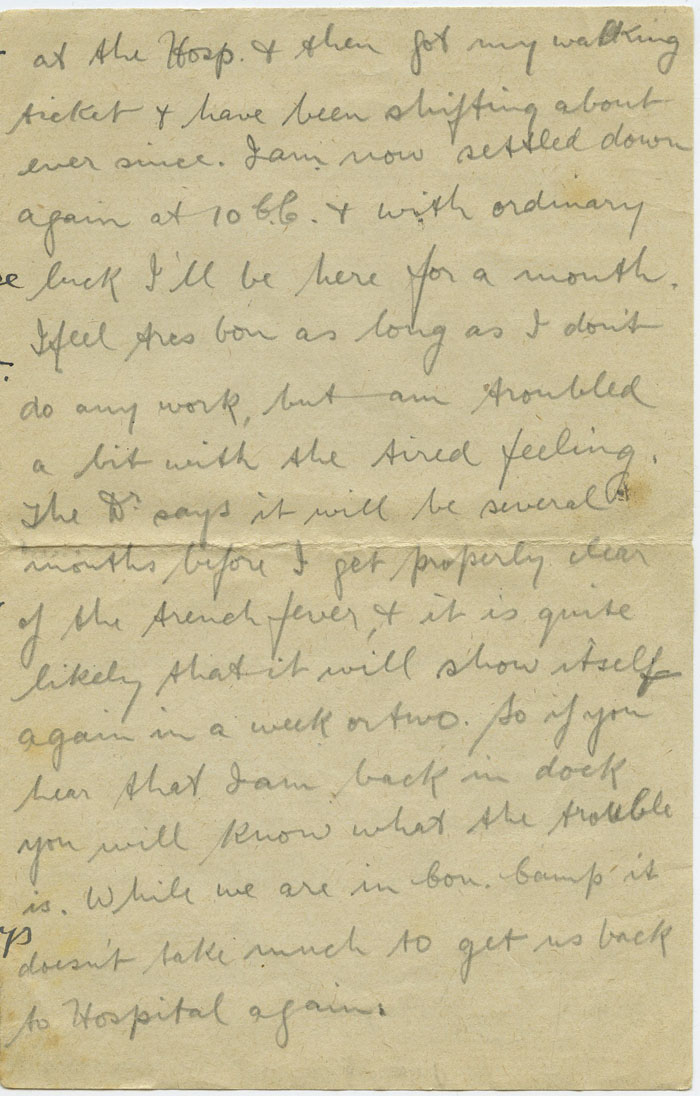 at the Hosp. & then got my walking
ticket & have been shifting about
ever since. I am now settled down
again at 10 C.C. & with ordinary
luck I'll be here for a month.
I feel tres bon as long as I don't
do any work, but am troubled
a bit with the tired feeling.
The Dr says it will be several
months before I get properly clear
of the trench fever, & it is quite
likely that it will show itself
again in a week or two. So if you
hear that I am back in dock
you will know what the trouble
is. While we are in Con. Camp it
doesn't take much to get us back
to Hospital again.